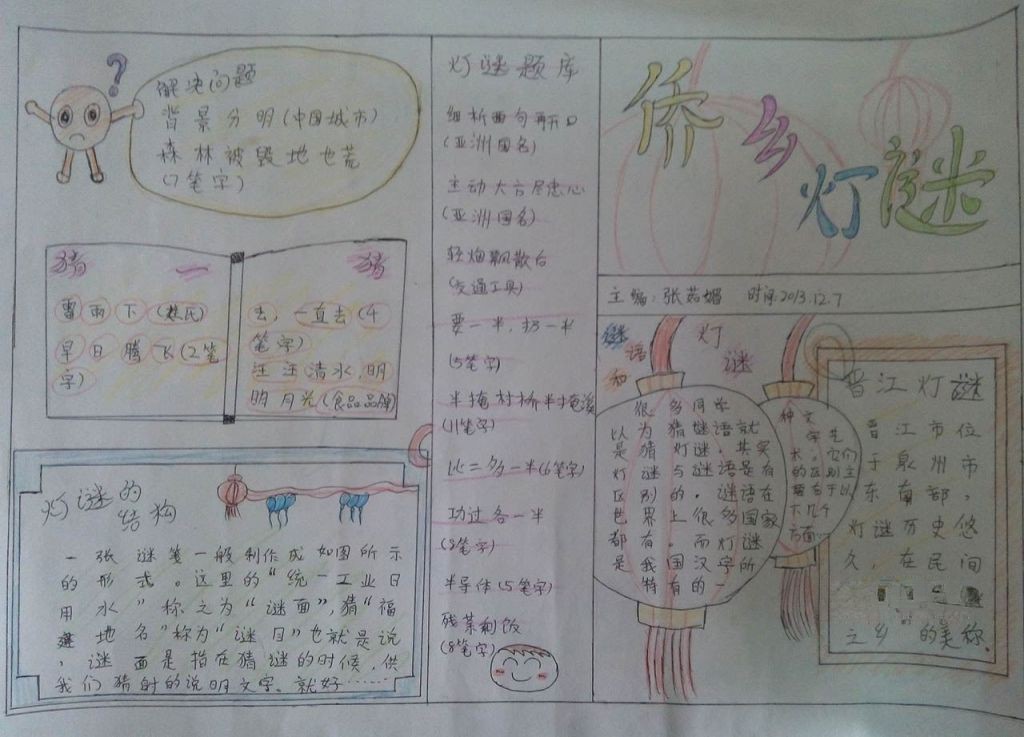 解决问题
背景分明(中国城市)
森林被毁地也荒
(7笔字)
猜一猜
雷雨下
早日腾飞(2笔
字)
去,一直去(4
笔字)
汪汪清水,明
明月光(食品品牌)
灯谜的
结构
一张谜笺一般制作成如图所示
的形式。这里的“统一工业日
用水”称之为“谜面”,猜“福
建地名”称为“谜目”也就是说
,谜面是指在猜谜的时候,供
我们猜射的说明文字。就好……
灯谜题库
细析两句再开口
(亚洲国名)
主动大方尽忠心
(亚洲国名)
轻烟飘散后
(交通工具)
要一半,扔一半
(5笔字)
半掩村桥半掩溪
(11笔字)
比二多一半(6笔字)
功过各一半
(8笔字)
半导体(5笔字)
残菜剩饭
(8笔字)
侨乡灯谜
主编:张茹媚 时间:2013.12.7
谜语和灯谜
很多同学
以为猜谜语就
是猜灯谜。其实
灯谜与谜语是有
区别的。谜语在
世界上很多国家
都有。而灯谜
是我国汉字所
特有的一
种文
字艺
术。它们
的区别主
要在于以
下几个
方面…
晋江灯谜
晋江市位
于泉州市
东南部,
灯谜历史悠
久,在民间
之乡 的美称。